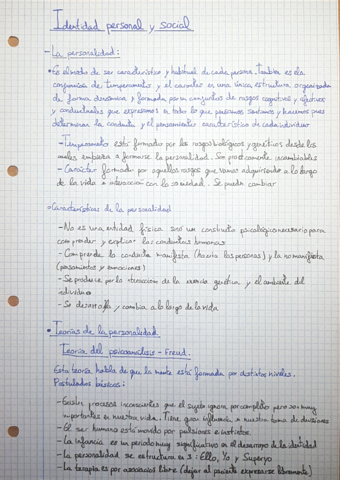 Identidad personal y social
- La personalidad:
• Es el modo de ser característico y habitual de cada persona. También es la
conjunción de temperamento y el carácter en una única estructura organizada
de forma dinámica y formada por un conjuntos de rasgos cognitivos y afectivos
y conductuales que expresamos en todo lo que pensamos sentimos y hacemos pues
determinan la conducta y el pensamientos característico de cada individuo
- Temperamento está formado por los rasgos biológicos y genéticos desde los
cuales empieza a formarse la personalidad. Son prácticamente incambiables
- Carácter formado por aquellos rasgos que vamos adquiriendo a lo largo
de la vida e interacción con la sociedad. Se puede cambiar
• Características de la personalidad
- No es una entidad física sino un constructo psicológico necesario para
comprender y explicar las conductas humanas
- Comprende la conducta manifiesta (hacia las personas) y la no manifiesta
(pensamientos y emociones)
- Se produce por la interacción de la genética y el ambiente del
individuo
- Se desarrolla y cambia a lo largo de la vida
• Teorías de la personalidad
Teoría del psicoanálisis - Freud.
Esta teoría habla de que la mente está formada por distintos niveles.
Postulados básicos:
- Existen procesos inconscientes que el sujeto ignora por completo pero son muy
importantes en nuestra vida. Tiene gran influencia a nuestra toma de decisiones
- El ser humano está movido por pulsiones e instintos
- La infancia es un periodo muy significativo en el desarrollo de la identidad
- La personalidad se estructura en 3: Ello, Yo y Superyo
- La terapia es por asociación libre (dejar al paciente expresarse libremente)